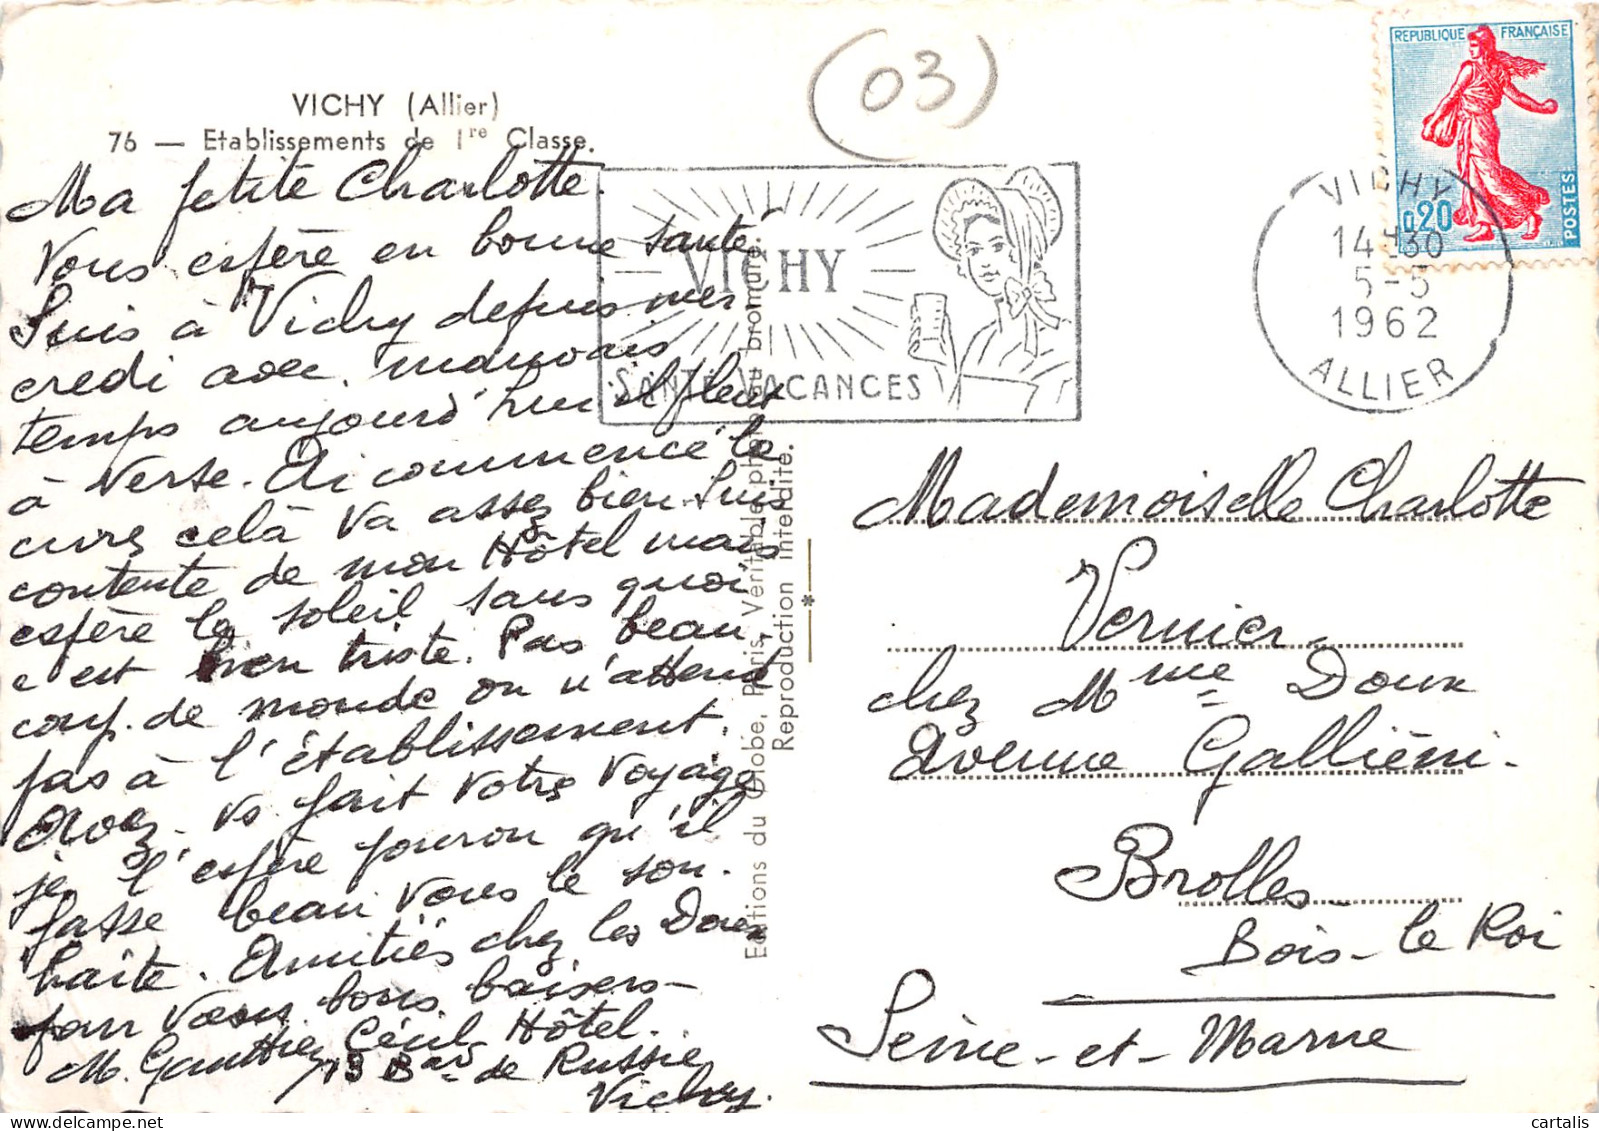 (03)
VICHY (Allier)
76 — Etablissements de 1re Classe.
Ma petite Charlotte.
Vous espère en bonne santé.
Suis à Vichy depuis mer
credi avec mauvais
temps aujourd'hui il pleut
à verse. Ai commencé la
cure celà va assez bien. Suis
contente de mon Hôtel mais
espère le soleil sans quoi
c'est bien triste. Pas beau
coup de monde on n'attend
pas à l'établissement.
Avez-vs fait votre voyage
je l'espère pourvu qu'il
fasse beau vous le sou-
haite. Amitiés chez les Doux
pour vous bons baisers-
M. Gauthier Cécil Hôtel.
13 Bard de Russie
Vichy.
Editions du Globe, Paris, Véritable photo au bromure.
Reproduction interdite.
VICHY
SANTÉ VACANCES
REPUBLIQUE FRANÇAISE
0,20
POSTES
VICHY
14H30
5-5
1962
ALLIER
Mademoiselle Charlotte
Vernier
chez Mme Doux
Avenue Galliéni-
Brolles
Bois-le Roi
Seine-et-Marne
cartalis